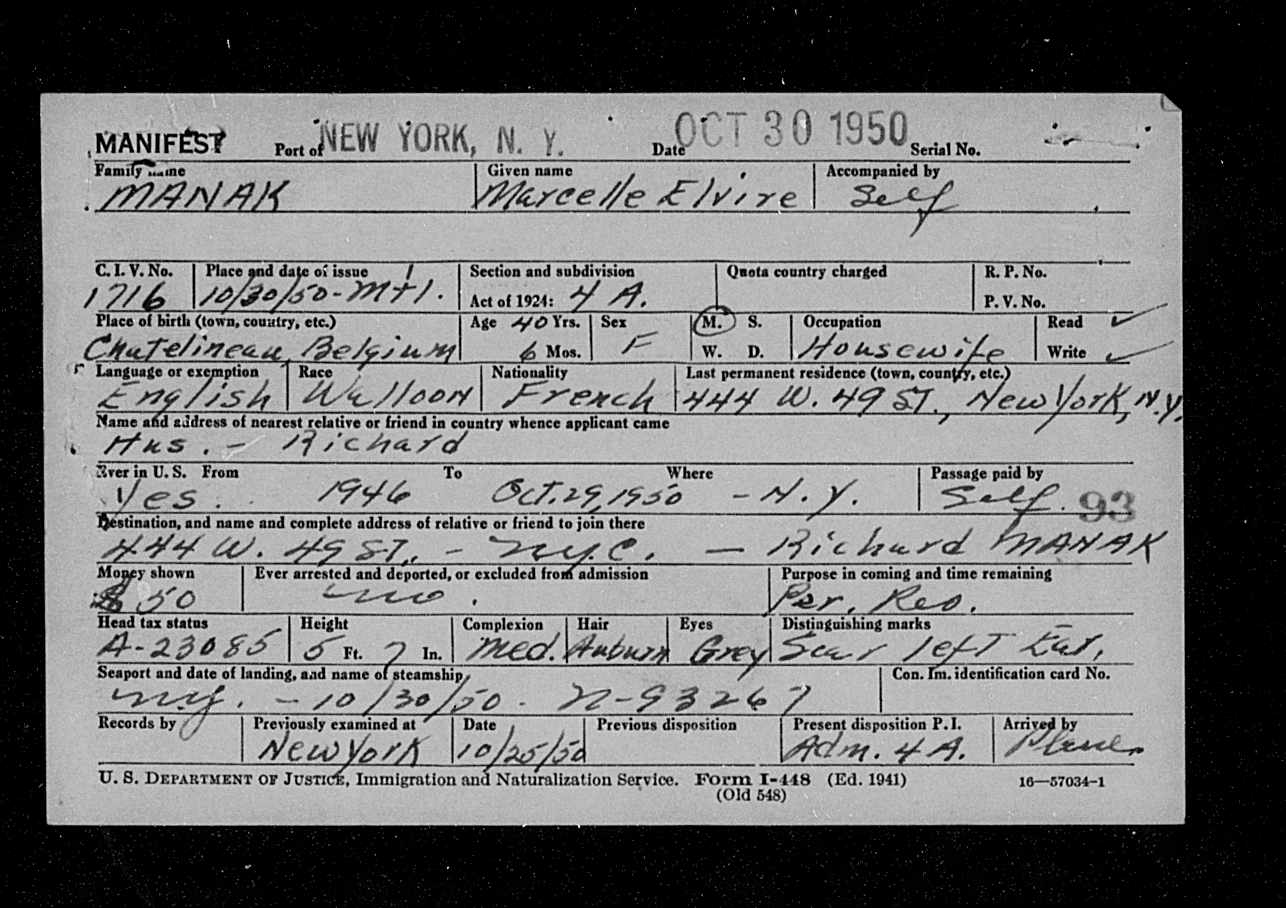 MANIFEST Port of NEW YORK, N. Y. Date OCT 30 1950 Serial No.
Family name Given name Accompanied by
MANAK Marcelle Elvire Self
C. I. V. No. Place and date of issue Section and subdivision Quota country charged R. P. No.
1716 10/30/50 - Mtl. Act of 1924: 4 A. P. V. No.
Place of birth (town, country, etc.) Age 40 Yrs. Sex M. S. Occupation Read ✓
Chatelineau, Belgium 6 Mos. F W. D. Housewife Write ✓
Language or exemption Race Nationality Last permanent residence (town, country, etc.)
English Walloon French 444 W. 49 ST., New York, N.Y.
Name and address of nearest relative or friend in country whence applicant came
Hus. - Richard
Ever in U. S. From To Where Passage paid by
Yes. 1946 Oct. 29, 1950 - N. Y. Self. 93
Destination, and name and complete address of relative or friend to join there
444 W. 49 ST., - N.Y.C. - Richard MANAK
Money shown Ever arrested and deported, or excluded from admission Purpose in coming and time remaining
$ 50 no. Per. Res.
Head tax status Height Complexion Hair Eyes Distinguishing marks
A-23085 5 Ft. 7 In. Med. Auburn Grey Scar left Ear.
Seaport and date of landing, and name of steamship Con. Im. identification card No.
N.Y. - 10/30/50. N-93267
Records by Previously examined at Date Previous disposition Present disposition P. I. Arrived by
New York 10/25/50 Adm. 4 A. Plane
U. S. DEPARTMENT OF JUSTICE, Immigration and Naturalization Service. Form I-448 (Ed. 1941) 16—57034-1
(Old 548)